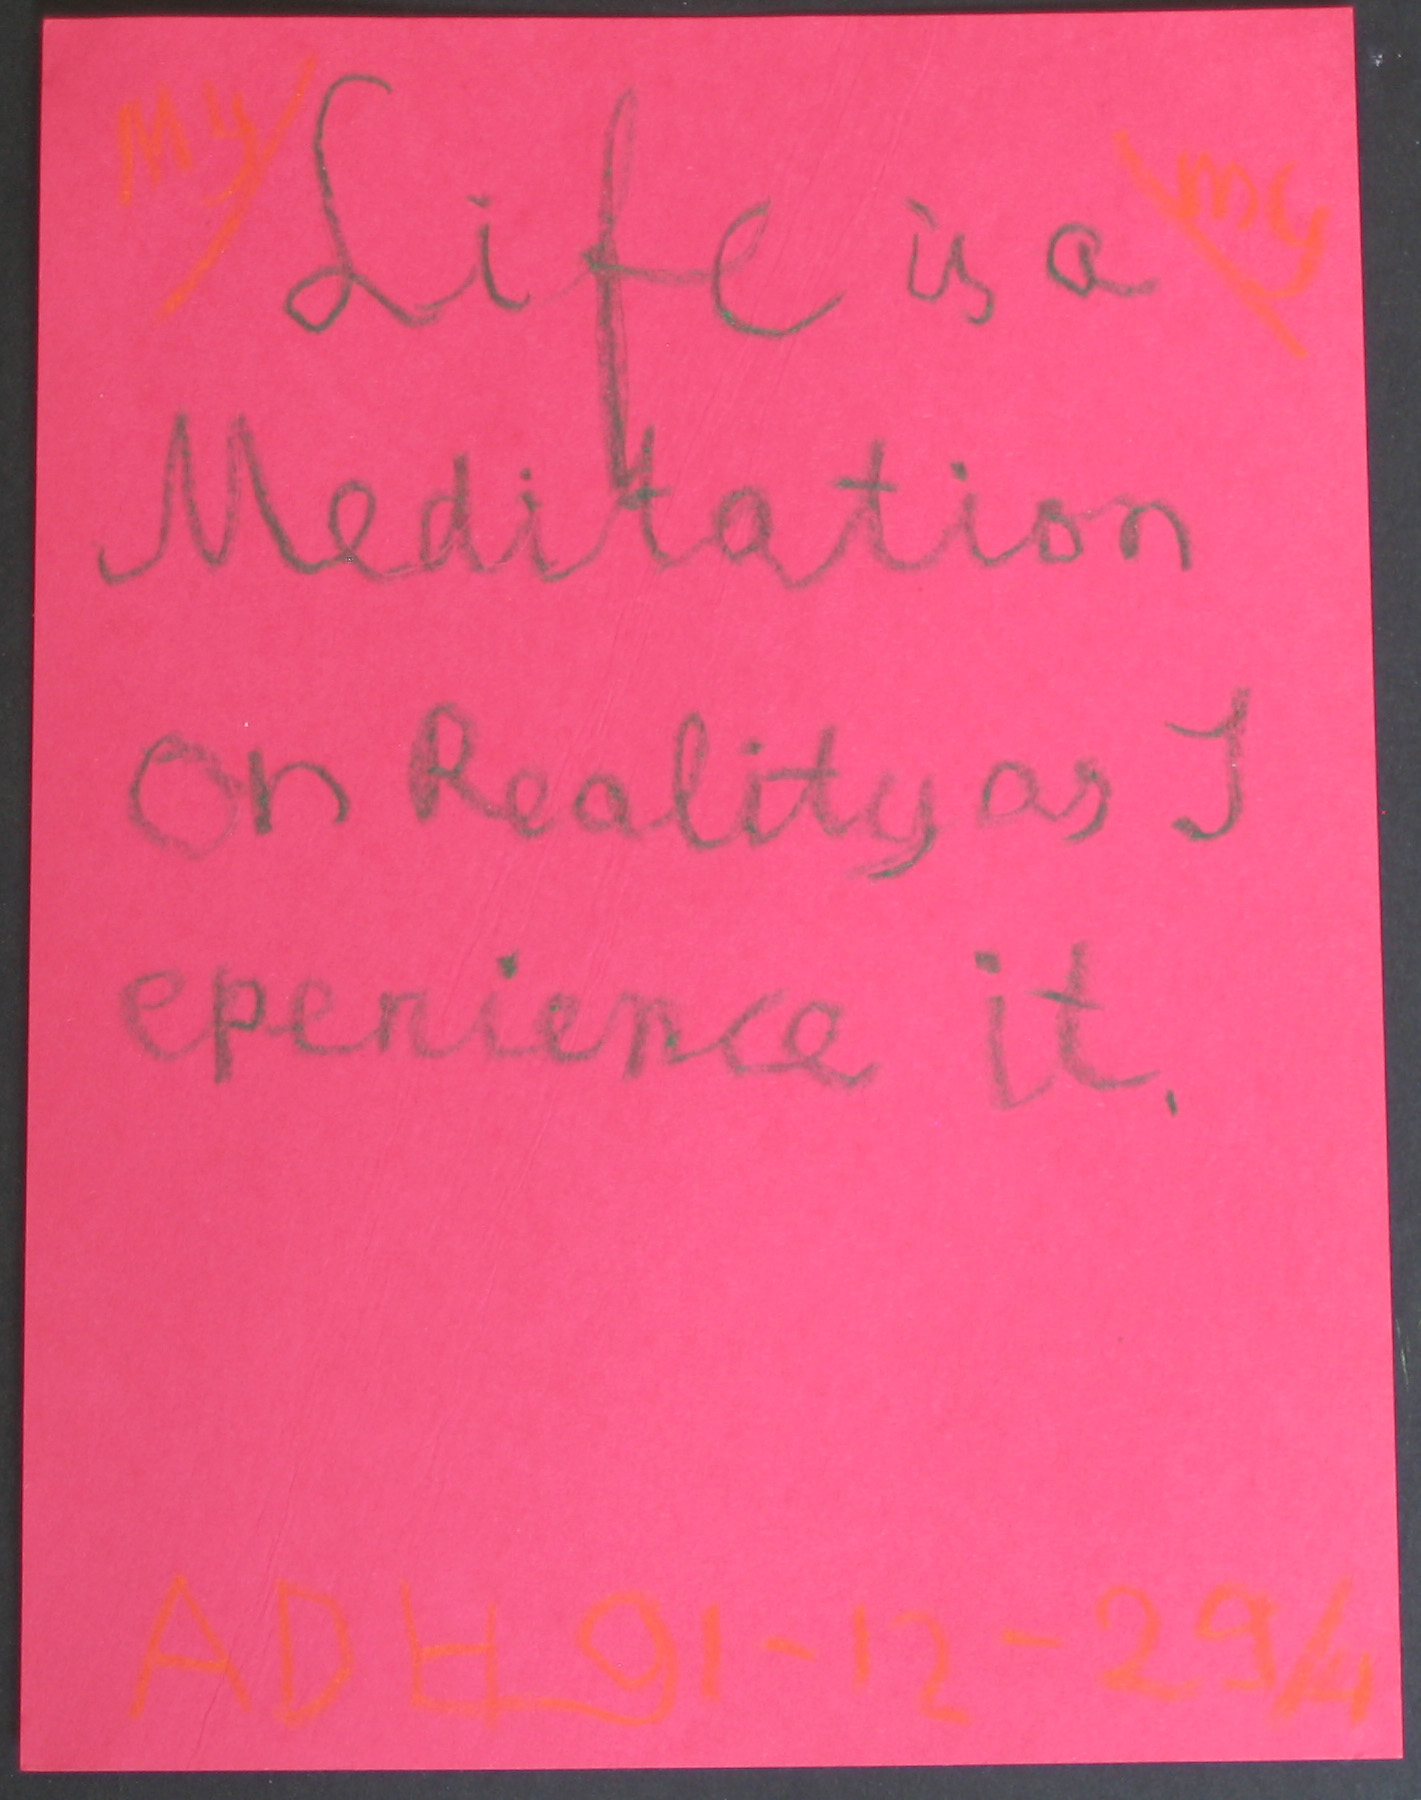 My / Life is a \ my
Meditation
on Reality as I
eperience it.
ADH 91-12-29/4